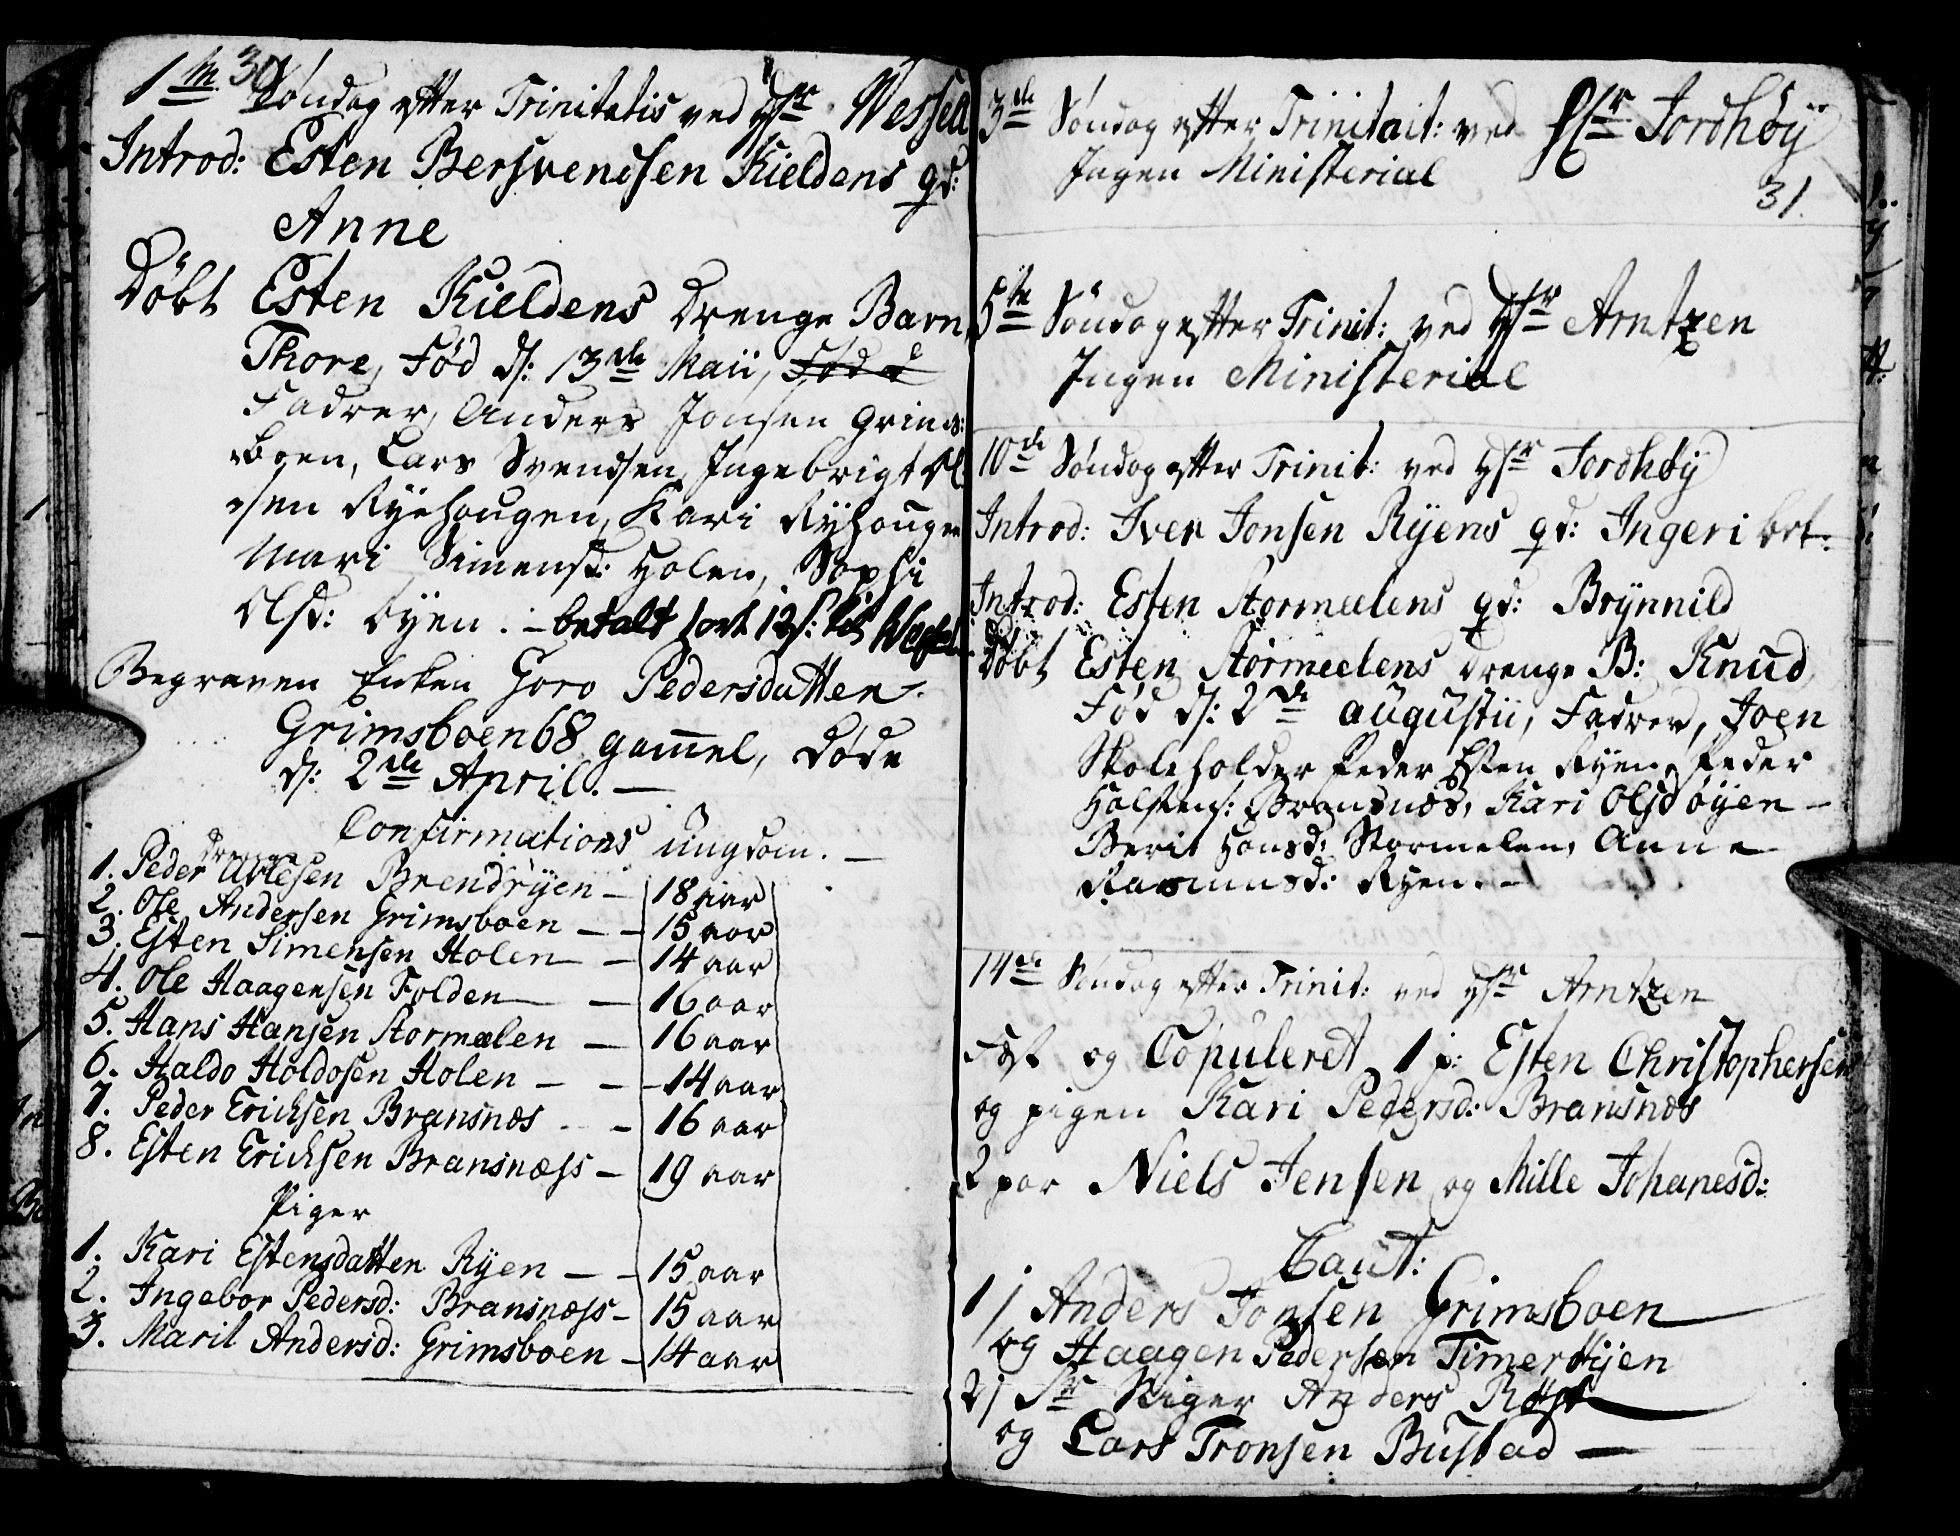 30
1te Søndag efter Trinitatis ved Hr Wessel
Introd: Esten Bersvendsen Kieldens qd:
Anne
Døbt Esten Kieldens Drenge Barn
Thore, Fød d: 13de Maii, Fød d
Fadrer, Anders Jonsen Grims:
boen, Lars Svendsen, Ingebrigt Ol
sen Ryehougen, Kari Ryhougen
Mari Simensd: Holen, Sophi
Olsd: Øyen. – betalt 1 ort 12 s: til Wessel
Begraven Enken Goro Pedersdatter
Grimsboen 68 gammel, døde
d: 2de April. –
Confirmations Ungdom. –
Drenge
1. Peder Olesen Brendryen – 18 aar
2. Ole Andersen Grimsboen – – 15 aar
3. Esten Simensen Holen – – 14 aar
4. Ole Haagensen Folden – – 16 aar
5. Hans Hansen Stormælen – 16 aar
6. Haldo Holdosen Holen – – 14 aar
7. Peder Ericksen Bransnæs – – 16 aar
8. Esten Ericksen Bransnæss – 19 aar
Piger
1. Kari Estensdatter Ryen – – 15 aar
2. Ingebor Pedersd: Bransnæss – 15 aar
3. Marit Andersd: Grimsboen – 14 aar
3de Søndag efter Trinitait: ved Hr Jordhøÿ
Ingen Ministerial
31.
5te Søndag efter Trinit: ved Hr Arntzen
Ingen Ministerial
10de Søndag efter Trinit: ved Hr Jordhøy
Introd: Iver Jonsen Ryens qd: Ingeri bet:
Introd: Esten Stormælens qd: Brynnild
Døbt Esten Stormælens Drenge B: Knud
Fød d: 2de Augustii, Fadrer, Joen
Skoleholder Peder Esten Ryen, Peder
Halstens: Bransnæs, Kari Olsd Øyen –
Berit Hansd: Stormelen, Anne
Rasmusd: Ryen. –
14de Søndag efter Trinit: ved Hr Arntzen
Fæst og Copuleret 1 p: Esten Christophersen
og pigen Kari Pedersd: Bransnæs
2 par Niels Jensen og Mille Johanesd:
Caut:
1/ Anders Jonsen Grimsboen
og Haagen Pedersen Timerøyen
2/ Sr Anders Røst
og Lars Tronsen Bustad –